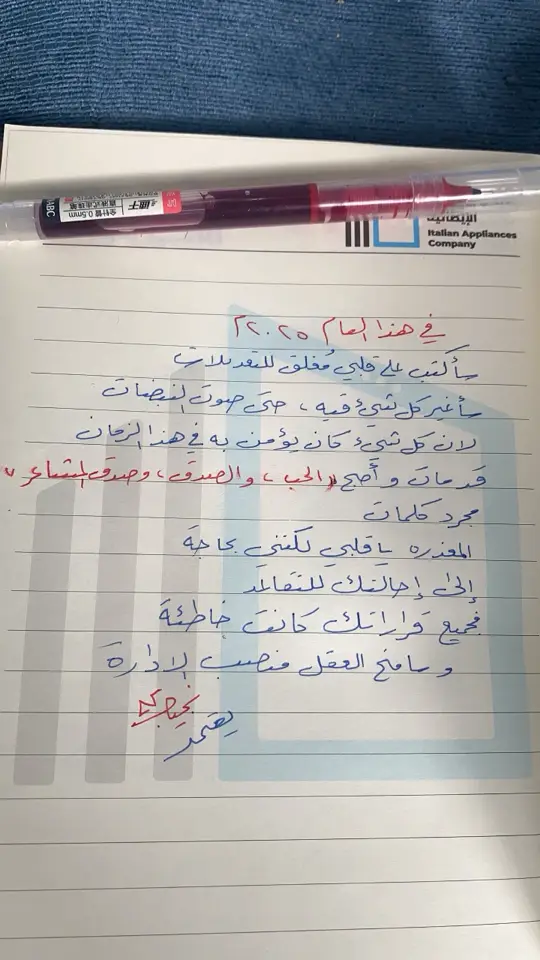 ABC
全针管 0.5mm
直液式走珠筆
Italian Appliances
Company
في هذا العام ٢٠٢٥م
سأكتب على قلبي مُغلق للتعديلات
سأغير كل شيء فيه، حتى صوت النبضات
لان كل شيء كان يؤمن به في هذا الزمان
قد مات وأصبح "الحب، والصدق، وصدق المشاعر"
مجرد كلمات
المعذره يا قلبي لكنني بحاجة
إلى إحالتك للتقاعد
فجميع قراراتك كانت خاطئة
وسامنح العقل منصب الادارة
يعتمد